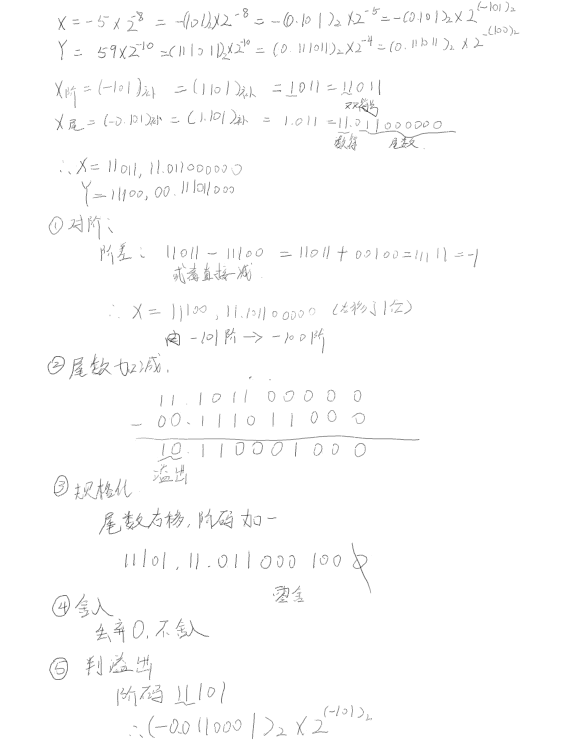 X = -5×2^-8 = -(101)₂×2^-8 = -(0.101)₂×2^-5 = -(0.101)₂×2^(-101)₂
Y = 59×2^-10 = (111011)₂×2^-10 = (0.111011)₂×2^-4 = (0.111011)₂×2^-(100)₂
X阶 = (-101)补 = (1101)补 = 1011 = 11011
双符号
X尾 = (-0.101)补 = (1.101)补 = 1.011 = 11.011000000
数符 尾数
∴X = 11011, 11.011000000
Y = 11100, 00.111011000
① 对阶:
阶差: 11011 - 11100 = 11011 + 00100 = 11111 = -1
或者直接减
∴ X = 11100, 11.101100000 (右移了1位)
由 -101阶 → -100阶
② 尾数加减.
11.101100000
- 00.111011000
10.110001000
溢出
③ 规格化
尾数右移,阶码加一
11101, 11.011000100 0
舍
④ 舍入
丢弃0,不舍入
⑤ 判溢出
阶码 11101
∴(-0.0110001)₂×2^(-101)₂